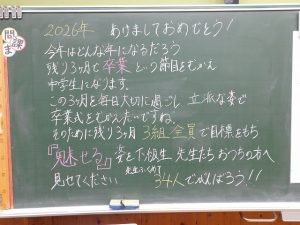 2026年 あけましておめでとう!
今年はどんな年になるだろう
残り3ヶ月で卒業という節目をむかえ
中学生になります。
この3ヶ月を毎日大切に過ごし 立派な姿で
卒業式をむかえたいですね。
そのために残り3ヶ月 3組全員で目標をもち
『魅せる』姿を下級生 先生たち おうちの方へ
見せてください
先生ふくめて
34人でがんばろう!!